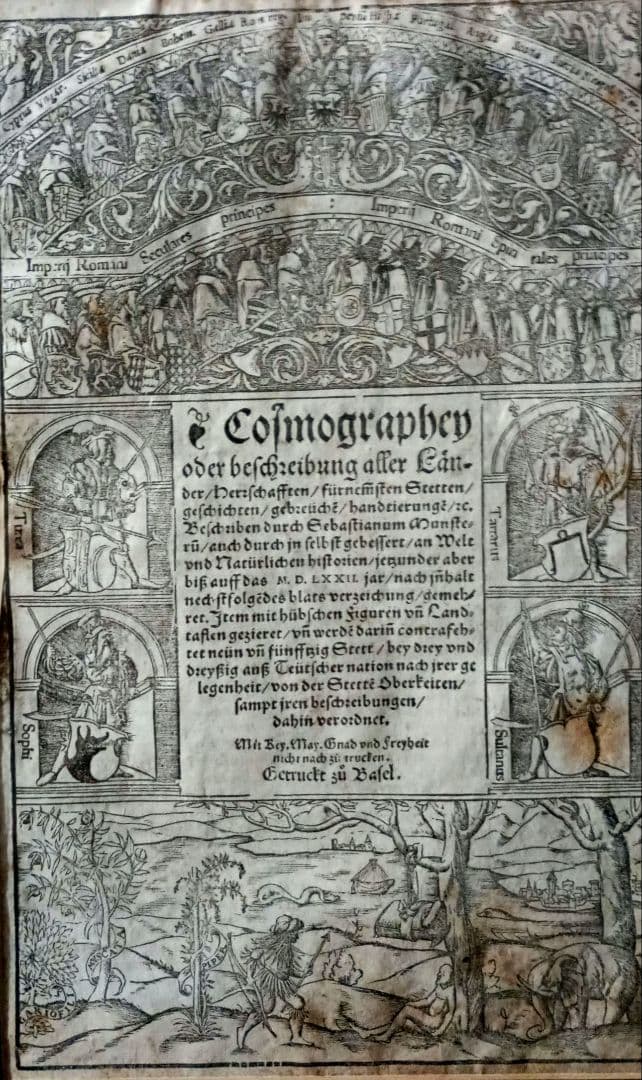 Cyprus Vngar. Sicilia Dania Bohem. Gallia Rom
Portuga. Anglia Scotia
Imperij Romani Seculares principes : Imperii Romani Spiri tales principes
Cosmographey
oder beschreibung aller Län-
der / Herrschafften / fürnem̃sten Stetten /
geschichten / gebreüchẽ / handtierungẽ / ꝛc.
Beschriben durch Sebastianum Munste-
rũ / auch durch jn selbst gebessert / an Welt
vnd Natürlichen historien / jetzunder aber
biß auff das M. D. LXXII. jar / nach jñhalt
nechstfolgẽdes blats verzeichung / gemeh-
ret. Item mit hübschen Figuren vñ Land-
taflen gezieret / vñ werdẽ dariñ contrafeh-
tet neün vñ fünfftzig Stett / bey drey vnd
dreyßig auß Teütscher nation nach jrer ge
legenheit / von der Stettẽ Oberkeiten /
sampt jren beschreibungen /
dahin verordnet.
Mit Key. May. Gnad vnd Freyheit
nicht nach zů trucken.
Getruckt zů Basel.
Turca
Tartarus
Sophi
Sultanus